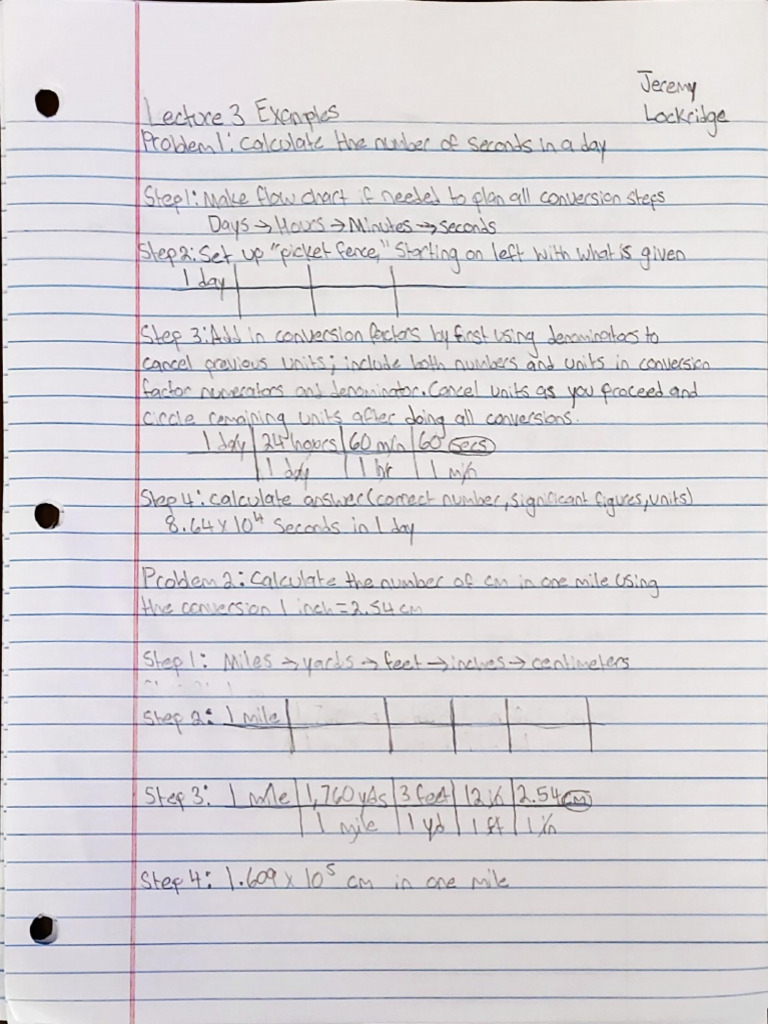 Jeremy
Lockridge
Lecture 3 Examples
Problem 1: Calculate the number of seconds in a day
Step 1: Make flow chart if needed to plan all conversion steps
Days → Hours → Minutes → seconds
Step 2: Set up "picket fence," starting on left with what is given
1 day
Step 3: Add in conversion factors by first using denominators to
cancel previous units; include both numbers and units in conversion
factor numerators and denominator. Cancel units as you proceed and
circle remaining units after doing all conversions.
1 day | 24 hours | 60 min | 60 secs
1 day | 1 hr | 1 min
Step 4: calculate answer (correct number, significant figures, units)
8.64 x 10⁴ seconds in 1 day
Problem 2: Calculate the number of cm in one mile using
the conversion 1 inch = 2.54 cm
Step 1: Miles → yards → feet → inches → centimeters
Step 2: 1 mile
Step 3: 1 mile | 1,760 yds | 3 feet | 12 in | 2.54 cm
1 mile | 1 yd | 1 ft | 1 in
Step 4: 1.609 x 10⁵ cm in one mile